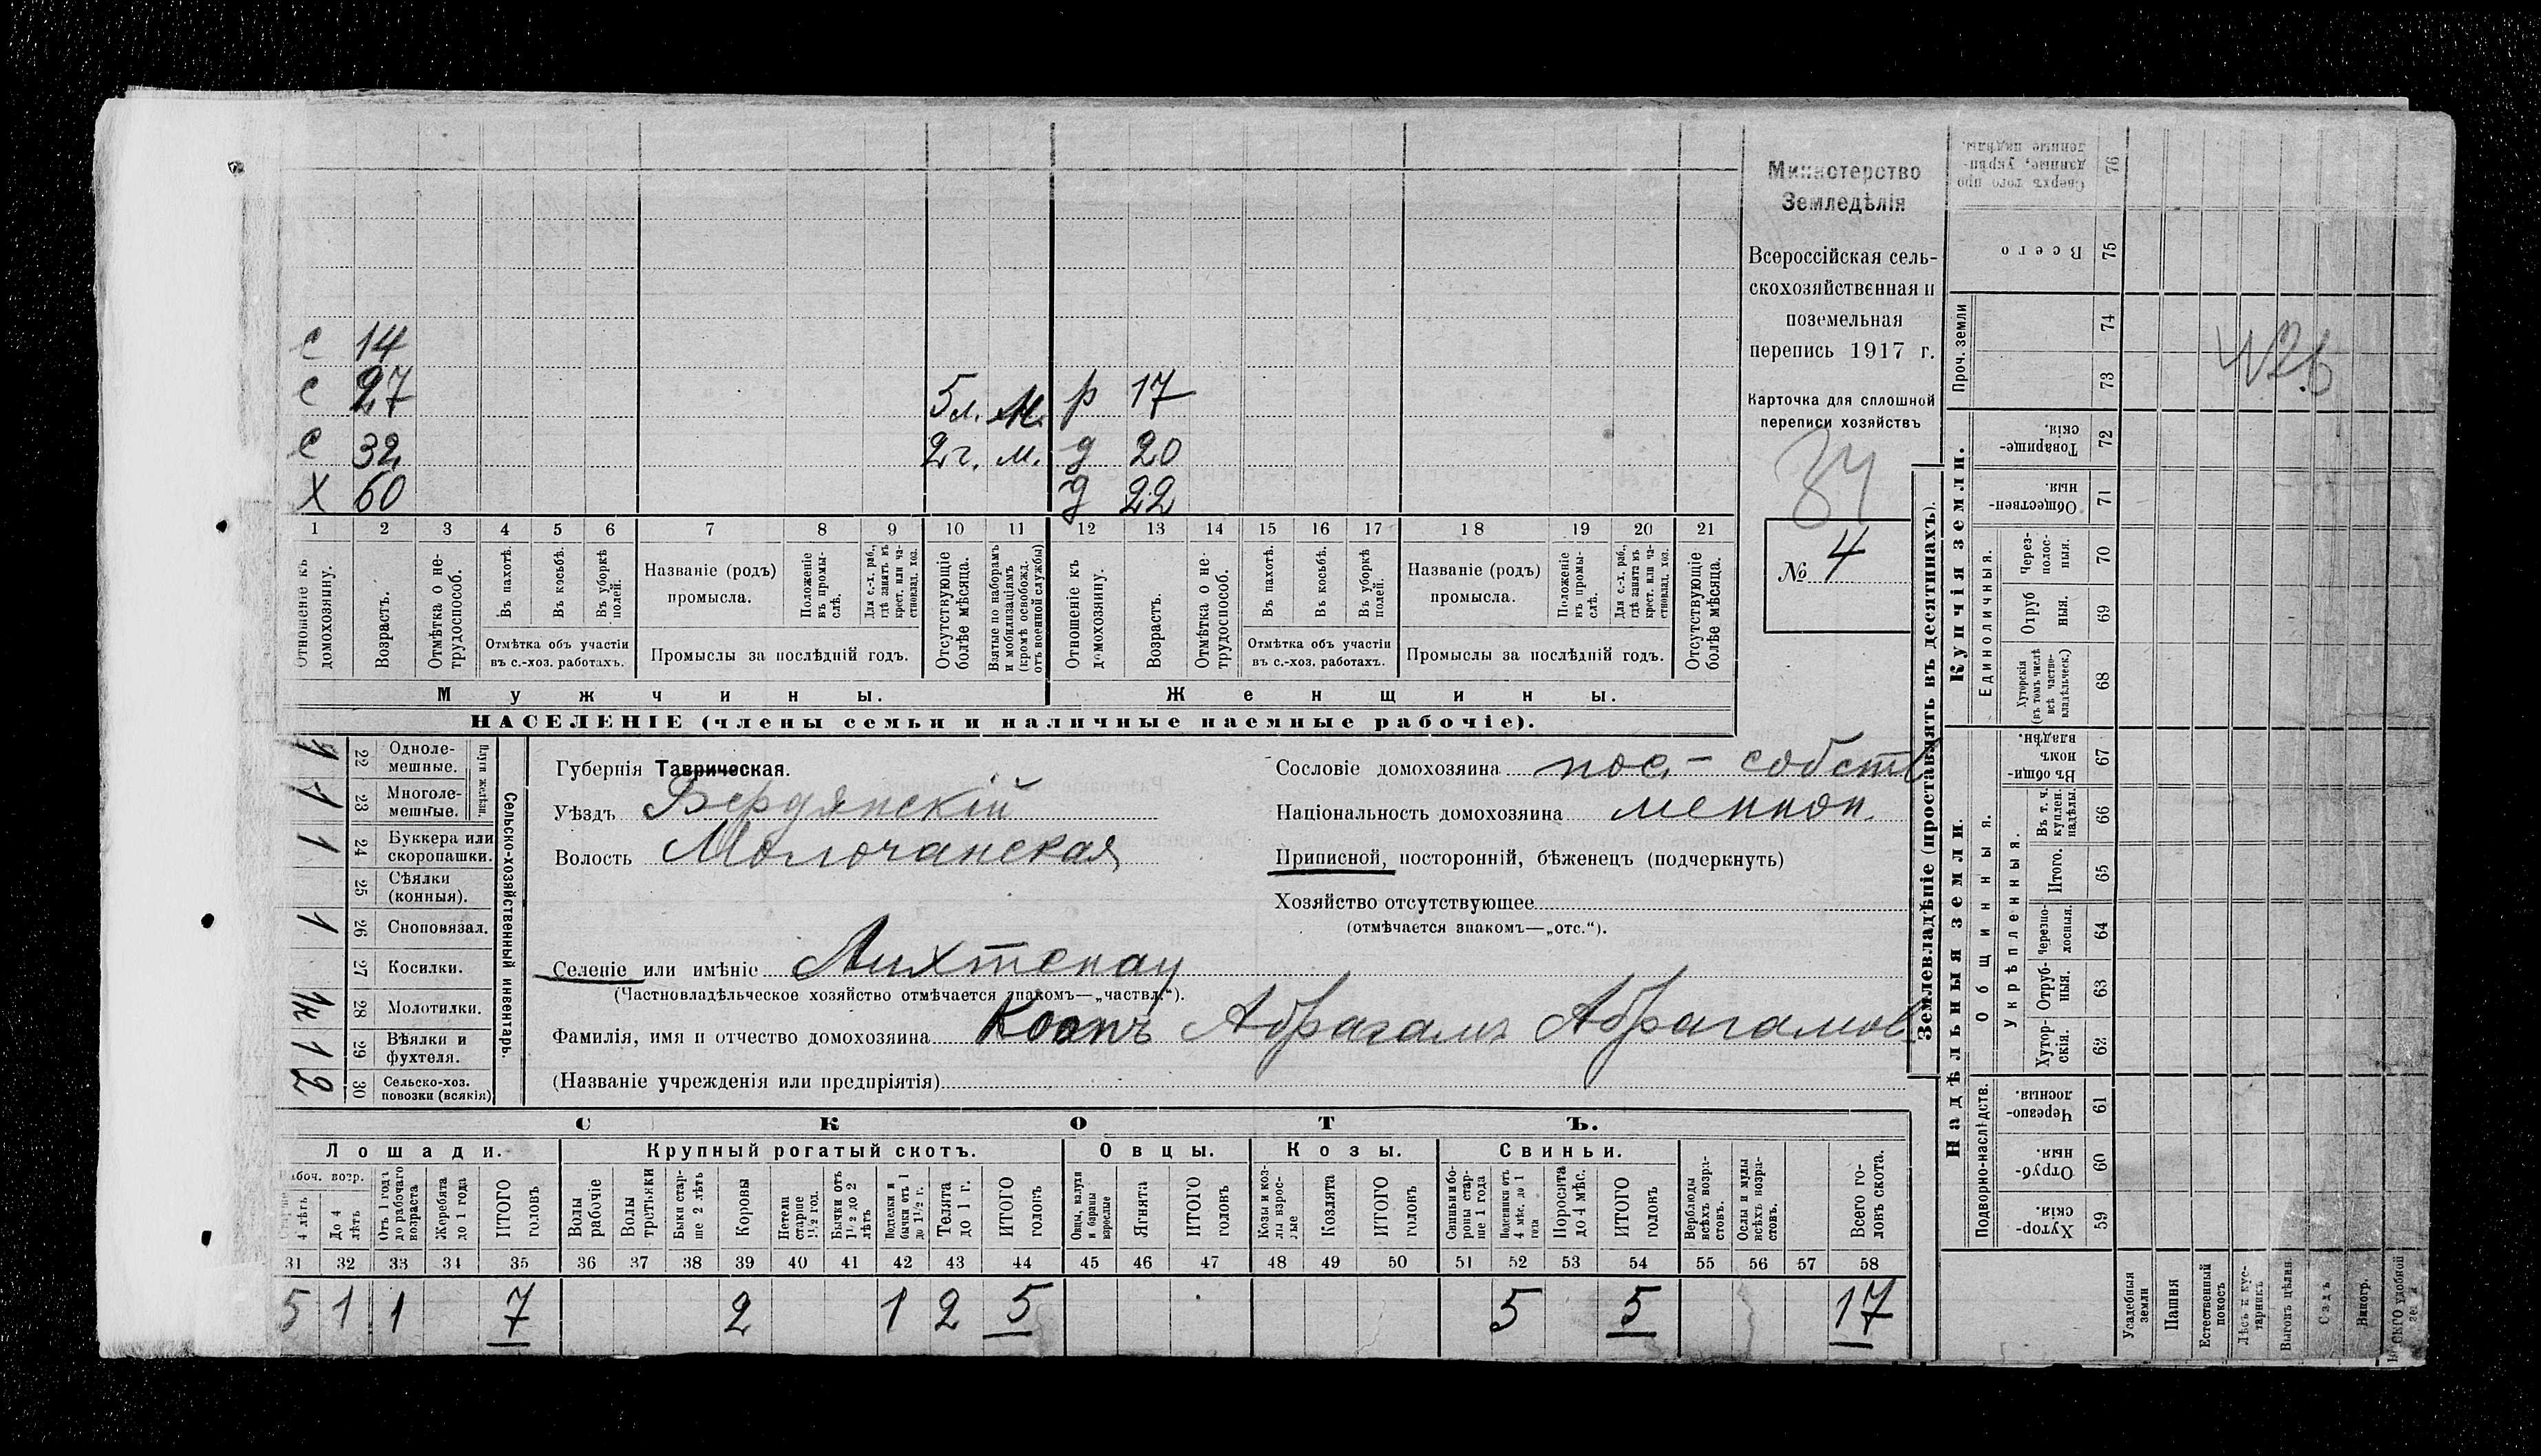 Министерство
Земледѣлія
Всероссійская сель-
скохозяйственная и
поземельная
перепись 1917 г.
Карточка для сплошной
переписи хозяйствъ
34
№ 4
с 14
с 27 5 л. м. р 17
с 32 2 г. м. д 20
х 60 д 22
1 2 3 4 5 6 7 8 9 10 11 12 13 14 15 16 17 18 19 20 21
Отношеніе къ домохозяину.
Возрастъ.
Отмѣтка о не-трудоспособ.
Въ пахотѣ.
Въ косьбѣ.
Въ уборкѣ полей.
Отмѣтка объ участіи
въ с.-хоз. работахъ.
Названіе (родъ)
промысла.
Положеніе въ промы-слѣ.
Для с.-х. раб., гдѣ занятъ въ крест. или ча-стновлад. хоз.
Промыслы за послѣдній годъ.
Отсутствующіе болѣе мѣсяца.
Взятые по наборамъ и мобилизаціямъ (кромѣ освобожд. отъ военной службы)
Отношеніе къ домохозяину.
Возрастъ.
Отмѣтка о не-трудоспособ.
Въ пахотѣ.
Въ косьбѣ.
Въ уборкѣ полей.
Отмѣтка объ участіи
въ с.-хоз. работахъ.
Названіе (родъ)
промысла.
Положеніе въ промы-слѣ.
Для с.-х. раб., гдѣ занята въ крест. или ча-стновлад. хоз.
Промыслы за послѣдній годъ.
Отсутствующіе болѣе мѣсяца.
Мужчины. Женщины.
НАСЕЛЕНІЕ (члены семьи и наличные наемные рабочіе).
Сельско-хозяйственный инвентарь.
Плуги желѣзн.
1 22 Одноле-мешные.
1 23 Многоле-мешные.
1 24 Буккера или скоропашки.
25 Сѣялки (конныя).
1 26 Сноповязал.
27 Косилки.
28 Молотилки.
1 29 Вѣялки и фухтеля.
2 30 Сельско-хоз. повозки (всякія)
Губернія Таврическая.
Уѣздъ Бердянскій
Волость Молочанская
Селеніе или имѣніе Лихтенау
(Частновладѣльческое хозяйство отмѣчается знакомъ—„частвл.“).
Фамилія, имя и отчество домохозяина Коопъ Абрагамъ Абрагамов
(Названіе учрежденія или предпріятія)
Сословіе домохозяина пос.- собств
Національность домохозяина меннон.
Приписной, посторонній, бѣженецъ (подчеркнуть)
Хозяйство отсутствующее
(отмѣчается знакомъ—„отс.“).
СКОТЪ.
Лошади. Крупный рогатый скотъ. Овцы. Козы. Свиньи.
Рабоч. возр.
4 лѣтъ
До 4 лѣтъ
Отъ 1 года до рабочаго возраста
Жеребята до 1 года
ИТОГО головъ
Волы рабочіе
Волы третьяки
Быки стар-ше 2 лѣтъ
Коровы
Нетели старше 1½ год.
Бычки отъ 1½ до 2 лѣтъ
Подтелки и бычки отъ 1 до 1½ г.
Телята до 1 г.
ИТОГО головъ
Овцы, валухи и бараны взрослые
Ягнята
ИТОГО головъ
Козы и коз-лы взрос-лые
Козлята
ИТОГО головъ
Свиньи и бо-ровы стар-ше 1 года
Подсвинки отъ 4 мѣс. до 1 года
Поросята до 4 мѣс.
ИТОГО головъ
Верблюды всѣхъ возра-стовъ.
Ослы и мулы всѣхъ возра-стовъ.
Всего го-ловъ скота.
31 32 33 34 35 36 37 38 39 40 41 42 43 44 45 46 47 48 49 50 51 52 53 54 55 56 57 58
5 1 1 7 2 1 2 5 5 5 17
Землевладѣніе (проставлять въ десятинахъ).
Надѣльныя земли. Купчія земли.
Проч. земли
Подворно-наслѣдств.
Общинныя.
Укрѣпленныя.
Единоличныя.
Сверхъ того про данные, укрѣп-ленные надѣлы. 76
Всего 75
74
73
Товарище-скія. 72
Обществен-ныя. 71
Через-полос-ныя. 70
Отруб ныя. 69
Хуторскія (въ томъ числѣ всѣ частно-владѣльческ.) 68
Въ общин-номъ владѣн. 67
Въ т. ч. куплен. надѣлы. 66
Итого. 65
Черезпо-лосныя. 64
Отруб-ныя. 63
Хутор-скія. 62
Черезпо-лосныя. 61
Отруб-ныя. 60
Хутор-скія. 59
Усадебныя земли
Пашня
Естественный покосъ
Лѣсъ и кус-тарникъ
Выгонъ цѣлин.
Садъ
Виногр.